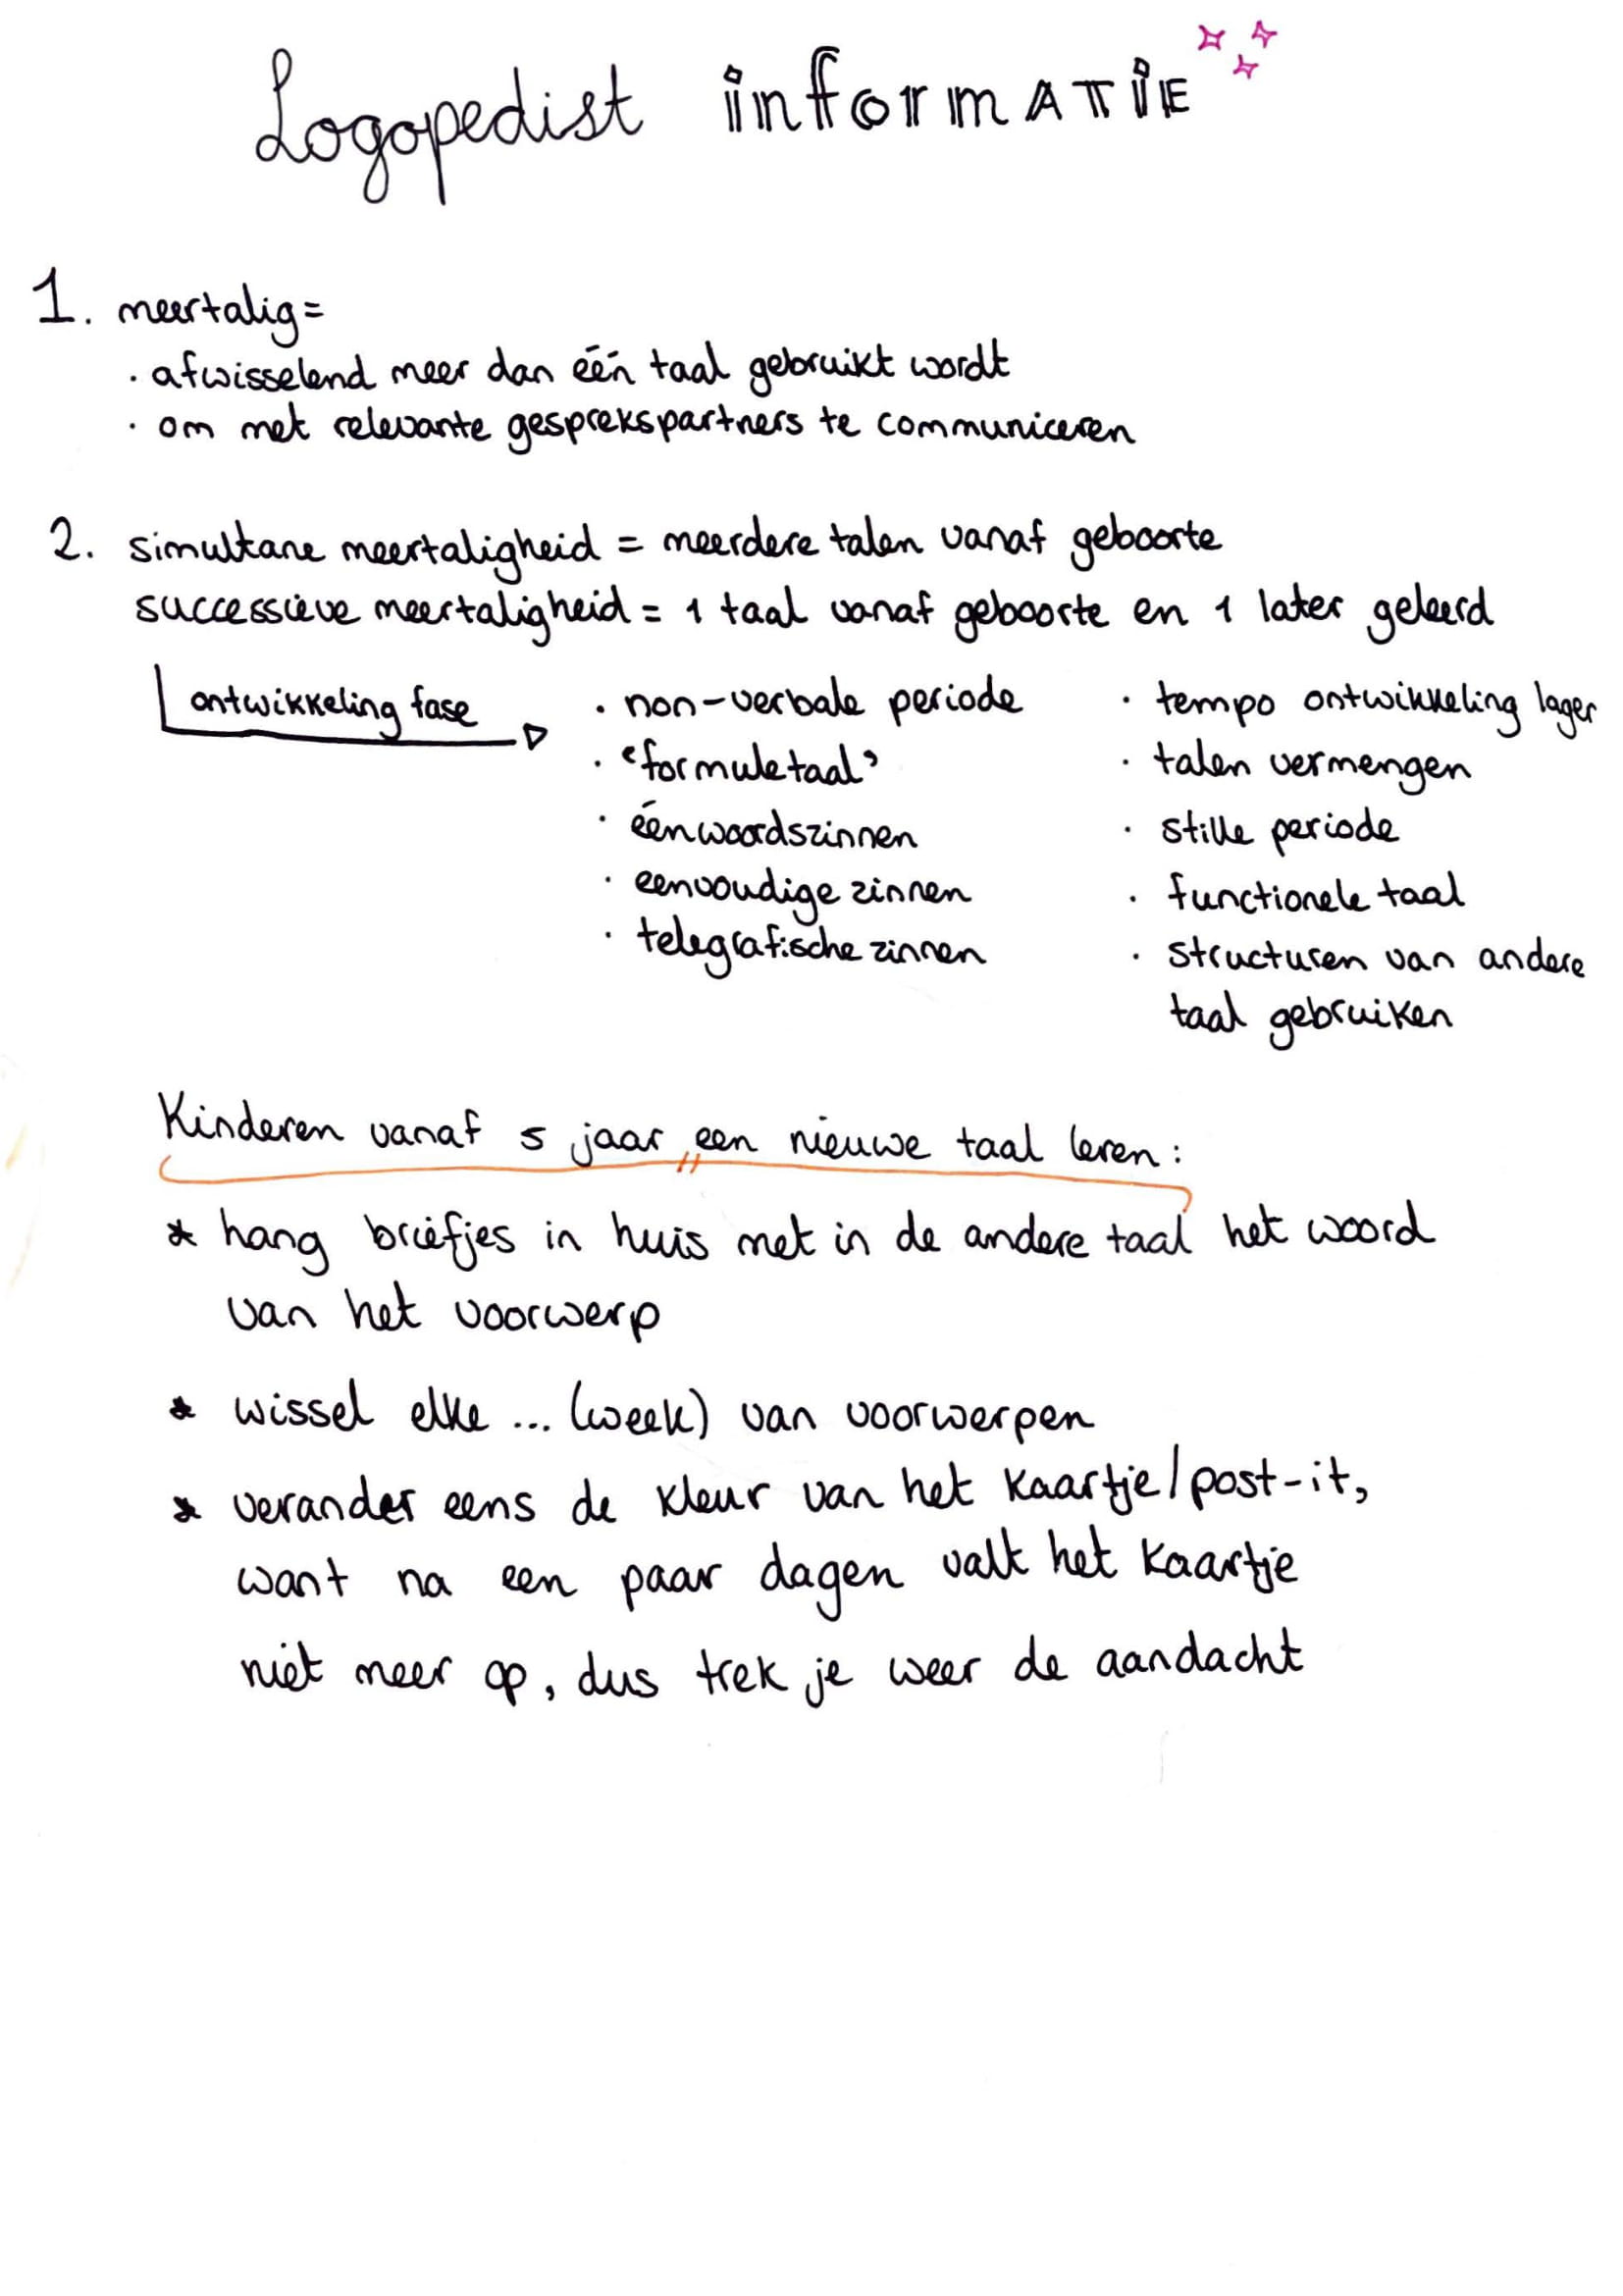 Logopedist informATiE
1. meertalig=
· afwisselend meer dan één taal gebruikt wordt
· om met relevante gesprekspartners te communiceren
2. simultane meertaligheid = meerdere talen vanaf geboorte
successieve meertaligheid = 1 taal vanaf geboorte en 1 later geleerd
ontwikkeling fase
· non-verbale periode
· 'formuletaal'
· éénwoordszinnen
· eenvoudige zinnen
· telegrafische zinnen
· tempo ontwikkeling lager
· talen vermengen
· stille periode
· functionele taal
· structuren van andere
taal gebruiken
Kinderen vanaf 5 jaar een nieuwe taal leren:
* hang briefjes in huis met in de andere taal het woord
van het voorwerp
* wissel elke ... (week) van voorwerpen
* verander eens de kleur van het kaartje/post-it,
want na een paar dagen valt het kaartje
niet meer op, dus trek je weer de aandacht